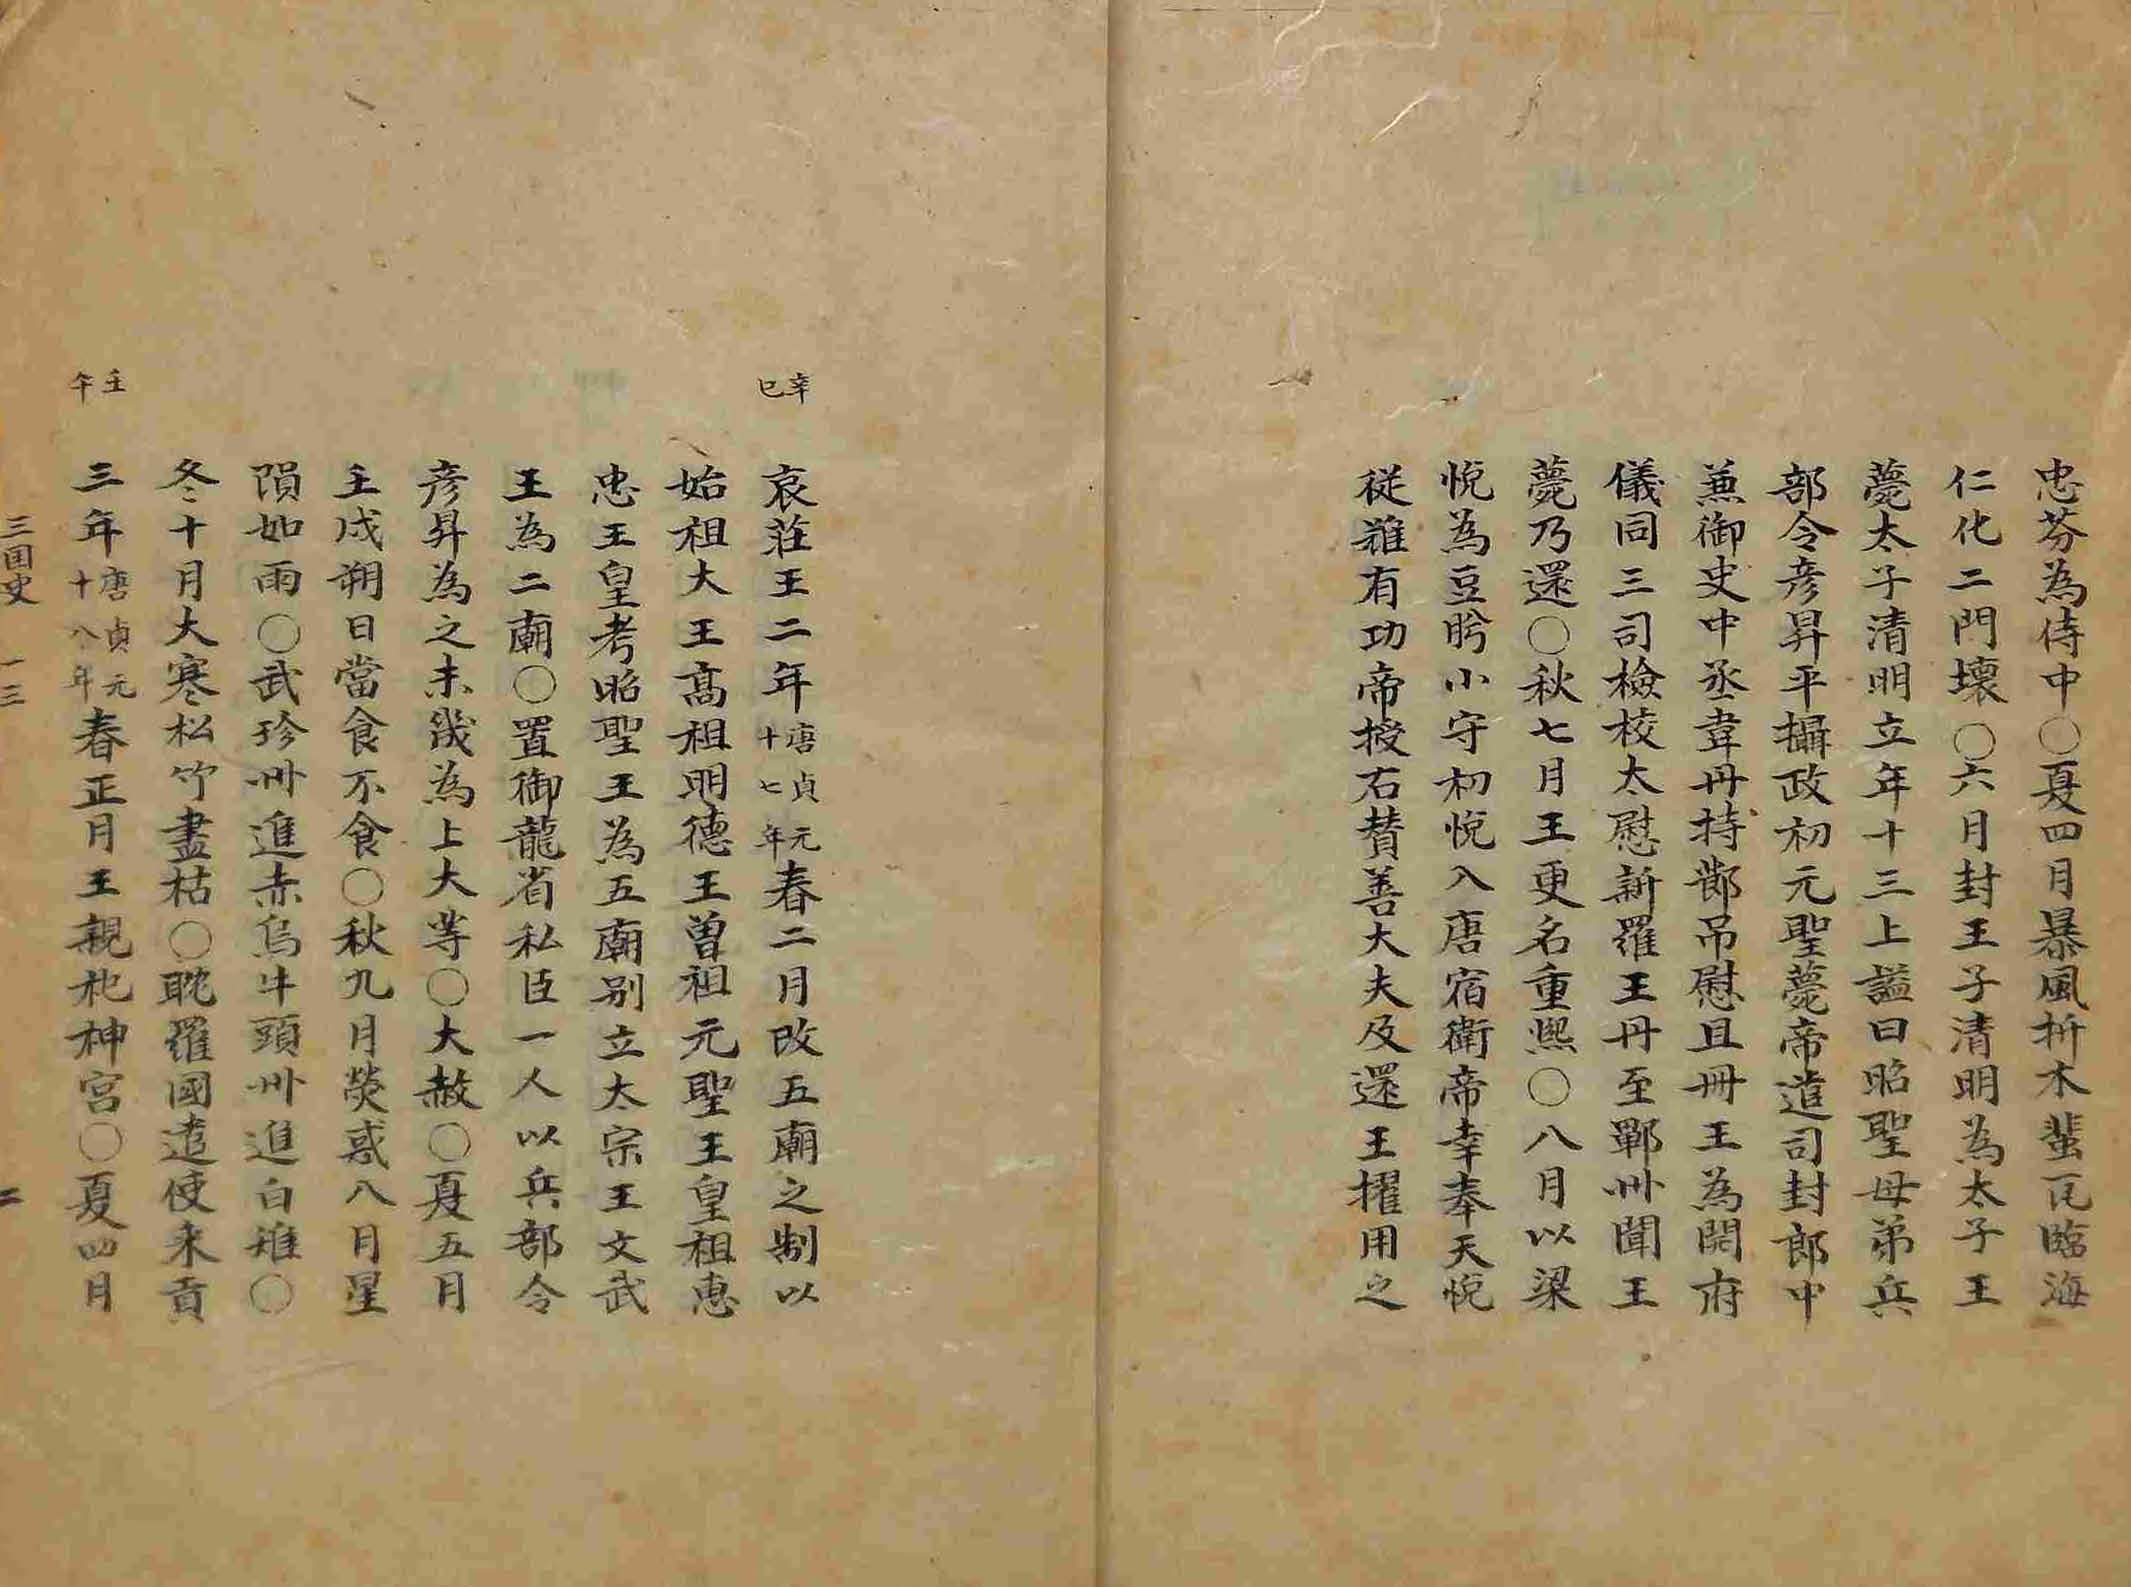 忠芬為侍中○夏四月暴風折木蜚瓦臨海
仁化二門壞○六月封王子清明為太子王
薨太子清明立年十三上謚曰昭聖母弟兵
部令彦昇平攝政初元聖薨帝遣司封郎中
兼御史中丞韋丹持節吊慰且冊王為開府
儀同三司檢校太慰新羅王丹至鄆州聞王
薨乃還○秋七月王更名重熙○八月以梁
悅為豆肹小守初悅入唐宿衛帝幸奉天悅
従難有功帝授右賛善大夫及還王擢用之
辛巳
哀莊王二年唐貞元十七年春二月改五廟之制以
始祖大王髙祖明德王曽祖元聖王皇祖惠
忠王皇考昭聖王為五廟别立太宗王文武
王為二廟○置御龍省私臣一人以兵部令
彦昇為之未幾為上大等○大赦○夏五月
壬戌朔日當食不食○秋九月熒惑入月星
隕如雨○武珍州進赤烏牛頭州進白雉○
冬十月大寒松竹盡枯○耽羅國遣使来貢
壬午
三年唐貞元十八年春正月王親祀神宮○夏四月
三国史 一三 二